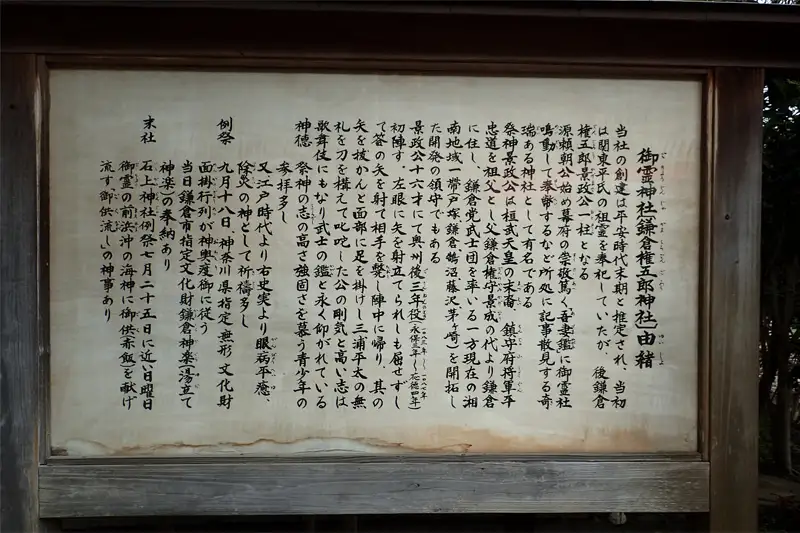 御霊神社(鎌倉権五郎神社)由緒
当社の創建は平安時代末期と推定され、当初
は関東平氏の祖霊を奉祀していたが、後鎌倉
権五郎景政公一柱となる
源頼朝公始め幕府の崇敬篤く、吾妻鑑に御霊社
鳴動して奉幣するなど所処に記事散見する奇
瑞ある神社として有名である
祭神景政公は桓武天皇の末裔、鎮守府将軍平
忠道を祖父とし父鎌倉権守景成の代より鎌倉
に住し、鎌倉党武士団を率いる一方現在の湘
南地域一帯(戸塚、鎌倉、鵠沼、藤沢、茅ヶ崎)を開拓し
た開発の領守でもある
景政公十六才にて奥州後三年役(永保三年~応徳四年)
初陣す、左眼に矢を射立てられしも屈せずし
て答の矢を射て相手を斃し陣中に帰り、其の
矢を抜かんと面部に足を掛けし三浦平太の無
礼を刀を構えて叱咤した公の剛気と高い志は
歌舞伎にもなり武士の鑑と永く仰がれている
神徳 祭神の志の高さ強固さを慕う青少年の
参拝多し
又江戸時代より右史実より眼病平癒、
除災の神として祈禱多し
例祭 九月十八日、神奈川県指定無形文化財
面掛行列が神輿渡御に従う
当日鎌倉市指定文化財鎌倉神楽(湯立て
神楽)の奉納あり
末社 石上神社例祭七月二十五日に近い日曜日
御霊の前浜沖の海神に御供(赤飯)を献げ
流す御供流しの神事あり